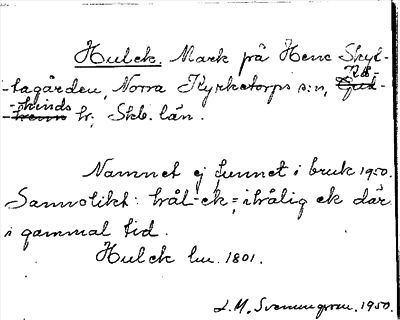 Hulck. Mark på Hene Skyt-
tagården, Norra Kyrketorps s:n,
Kå-
kinds
hr, Skb. län.
Namnet ej funnet i bruk 1950.
Sannolikt: hål-ek = ihålig ek där
i gammal tid.
Hulck lm. 1801.
L.M. Svenungsson. 1950.